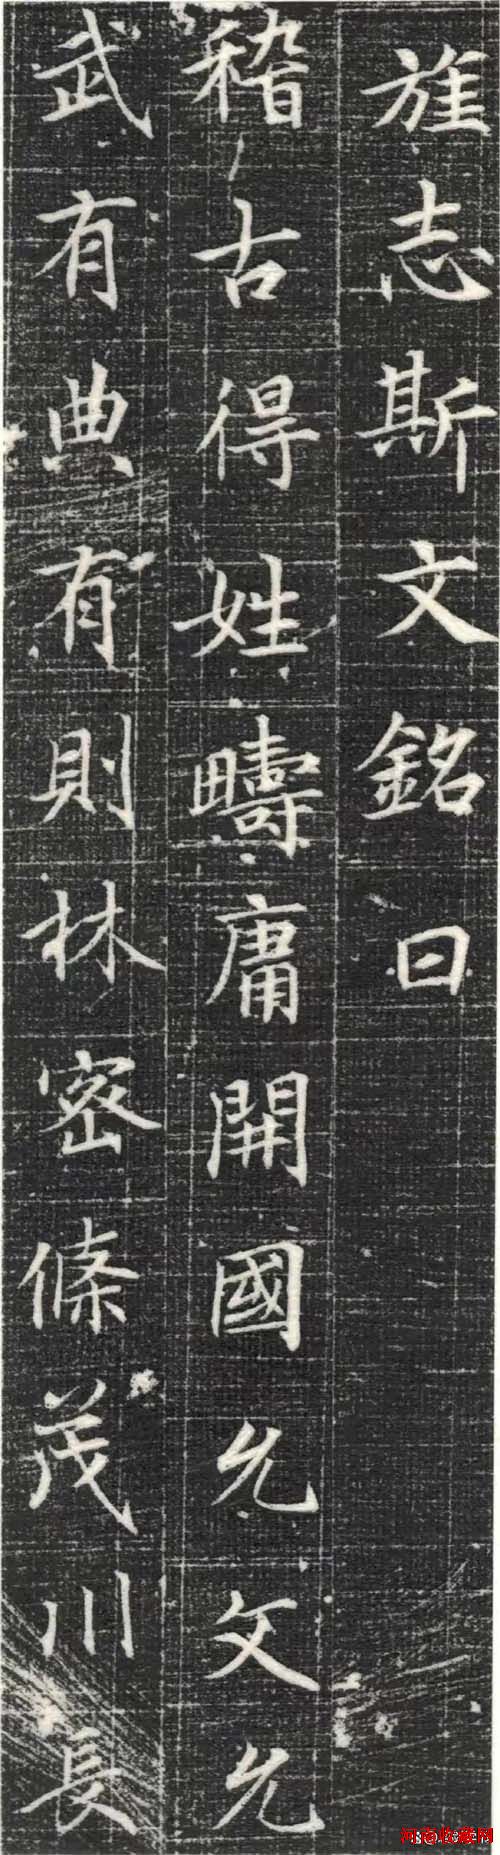 旌志斯文銘曰
稽古得姓疇庸開國允文允
武有典有則林密條茂川長